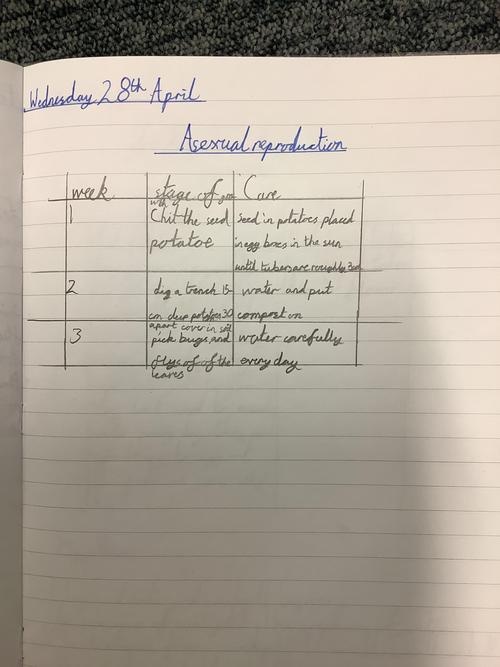 Wednesday 28th April
Asexual reproduction
week
stage of
Care
1
Chit the seed
potatoe
seed in potatoes placed
in egg boxes in the sun
until tubers are roughly 3cm
2
dig a trench 15
cm deep potatoes 30
apart cover in soil
water and put
compost on
3
pick bugs and
flys of of the
leaves
water carefully
every day